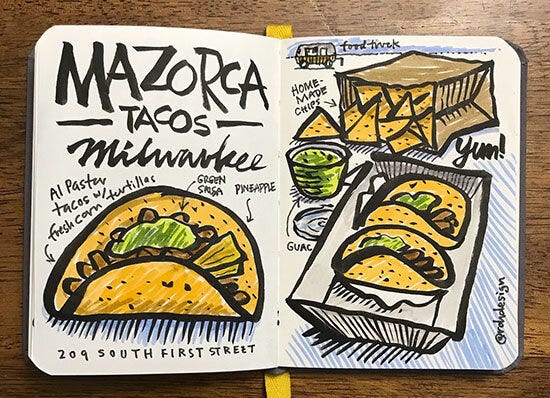 MAZORCA
TACOS
Milwaukee
Al Pastor
tacos w/
fresh corn tortillas
GREEN
SALSA
PINEAPPLE
209 SOUTH FIRST STREET
food truck
HOME-
MADE
CHIPS
Yum!
GUAC
@rohdesign